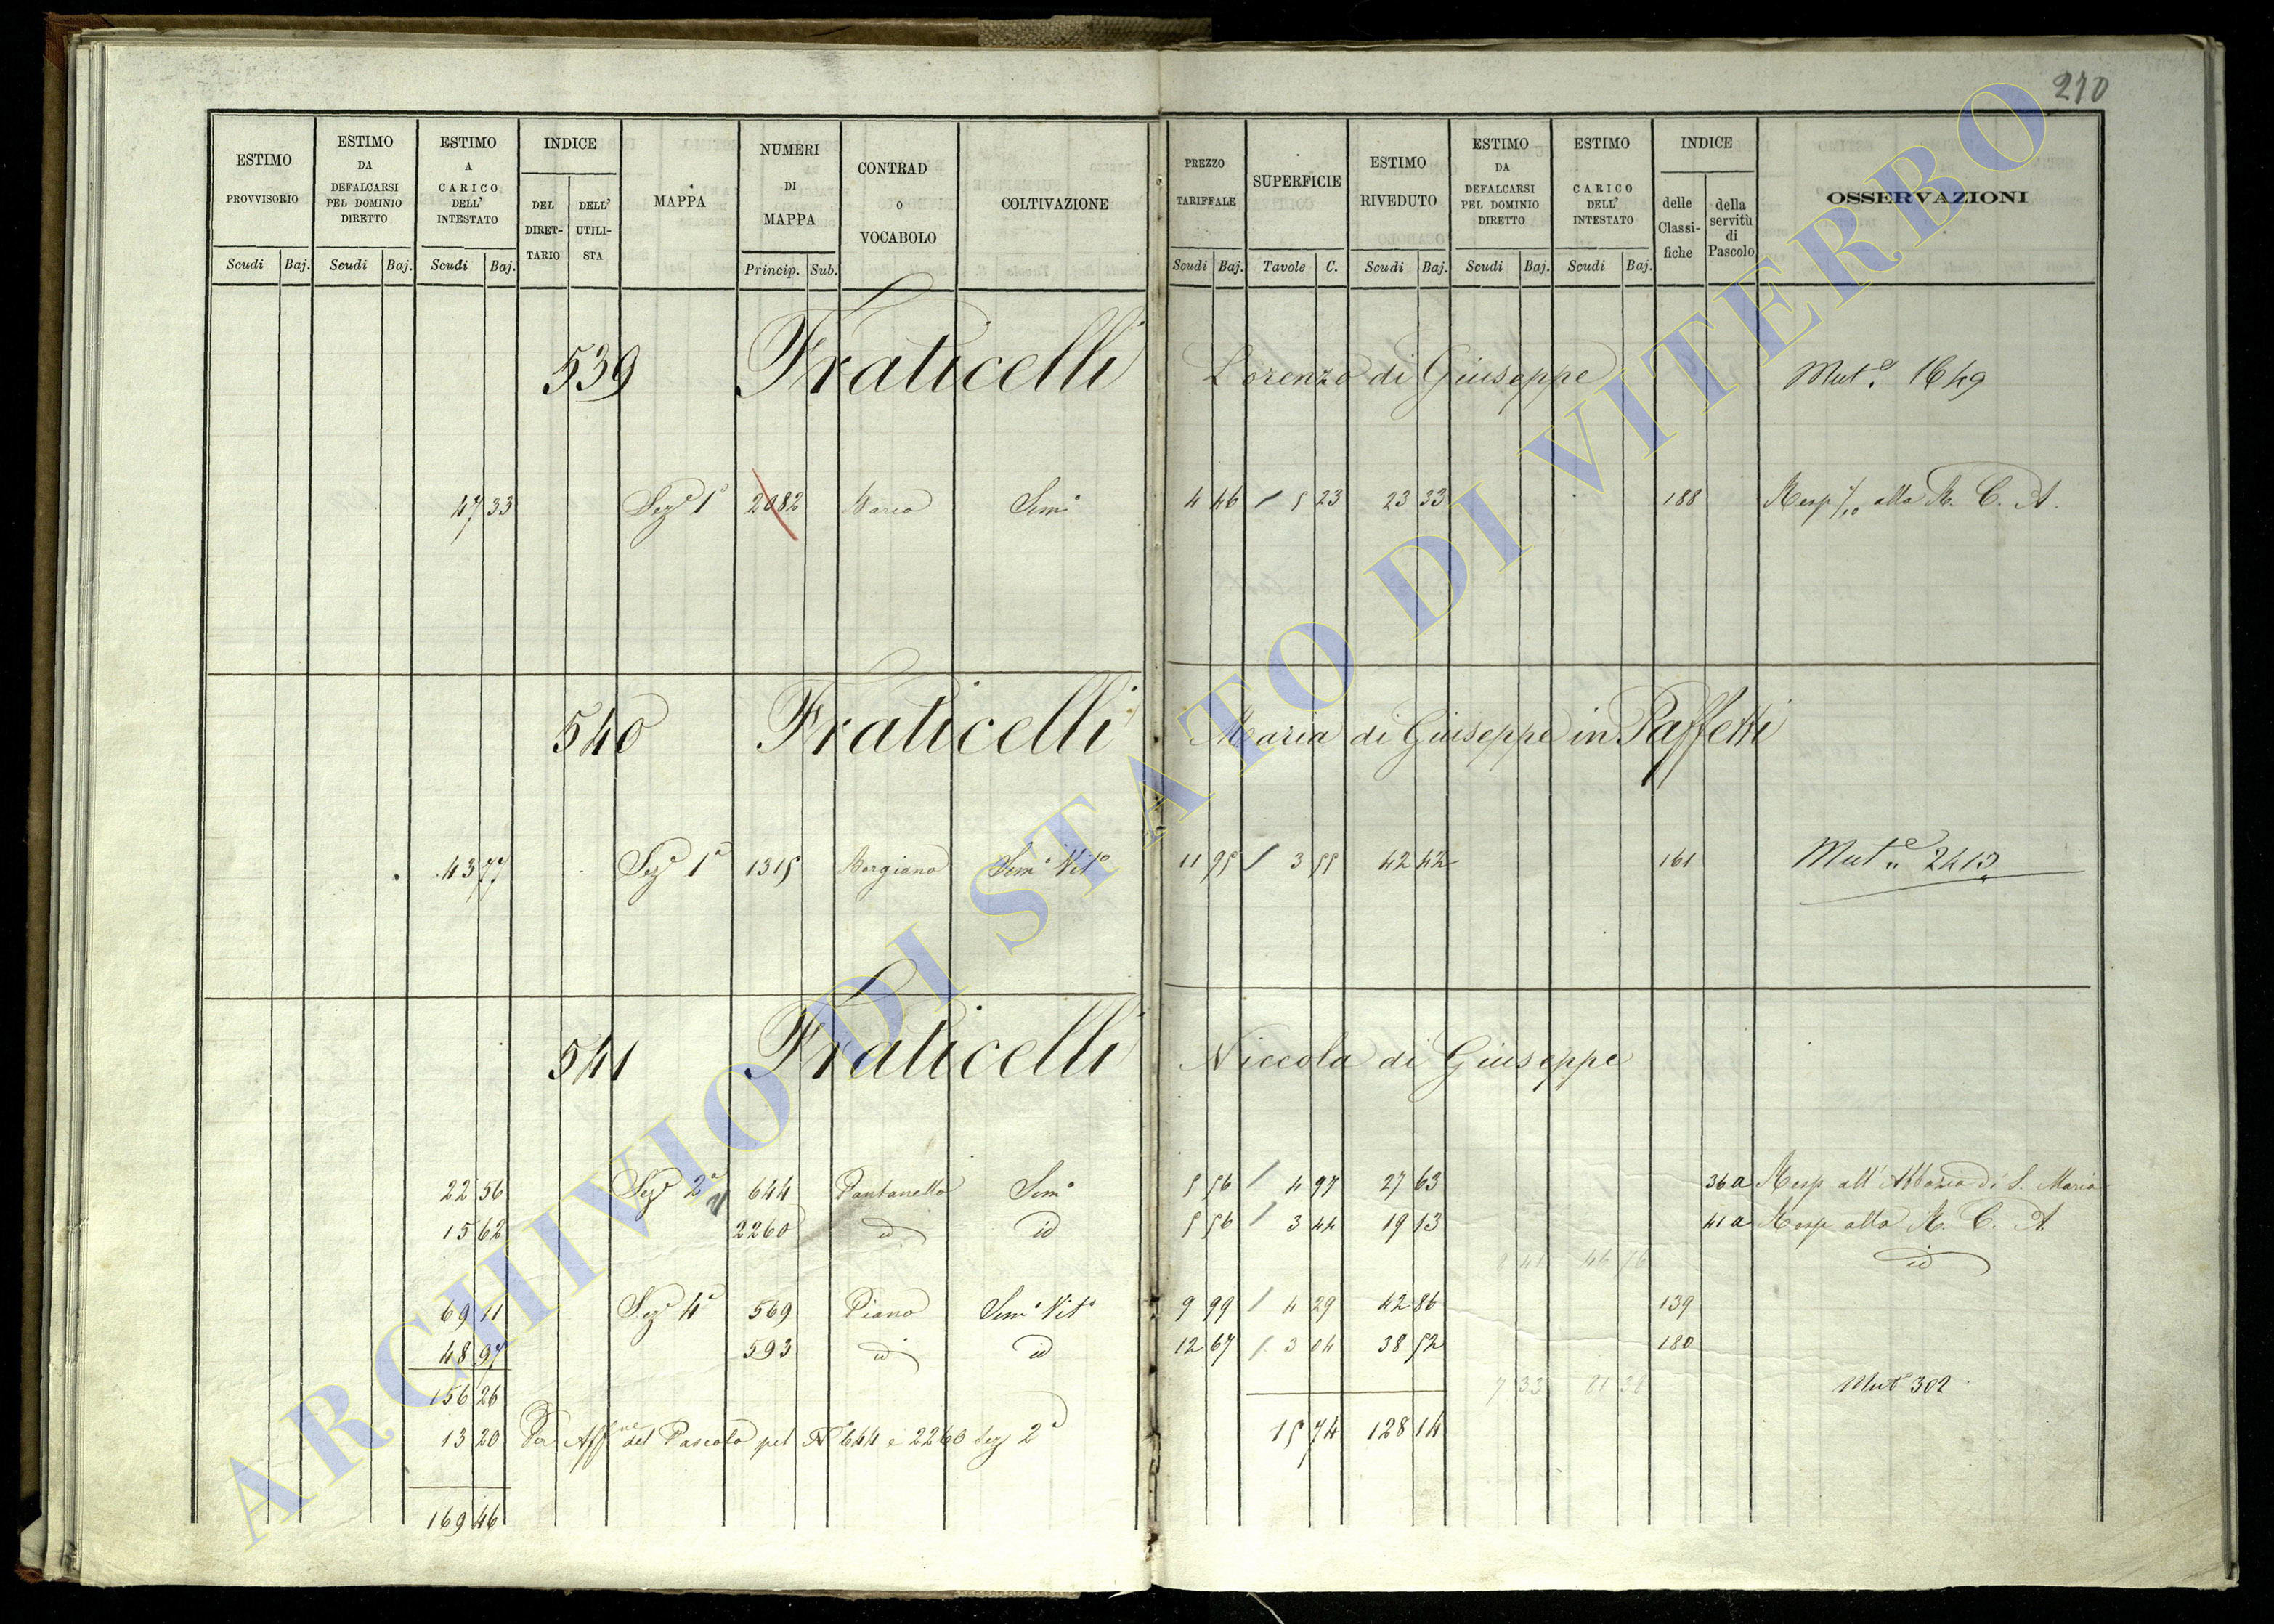 210
ESTIMO PROVVISORIO
ESTIMO DA DEFALCARSI PEL DOMINIO DIRETTO
ESTIMO A CARICO DELL' INTESTATO
INDICE
DEL DIRET-TARIO
DELL' UTILI-STA
MAPPA
NUMERI DI MAPPA
CONTRAD O VOCABOLO
COLTIVAZIONE
PREZZO TARIFFALE
SUPERFICIE
ESTIMO RIVEDUTO
ESTIMO DA DEFALCARSI PEL DOMINIO DIRETTO
ESTIMO CARICO DELL' INTESTATO
INDICE
delle Classi-fiche
della servitù di Pascolo
OSSERVAZIONI
Scudi Baj. Scudi Baj. Scudi Baj. Princip. Sub. Scudi Baj. Tavole C. Scudi Baj. Scudi Baj. Scudi Baj.
539 Fraticelli Lorenzo di Giuseppe Mut.e 1649
47 33 Sez.e 1a 2082 Sem.o 4 46 / 5 23 23 33 188 Resp alla R. C. A.
540 Fraticelli Maria di Giuseppe in Paffetti
43 77 Sez.e 1a 1315 Borgiano Sem.o Vit.o 11 95 / 3 55 42 42 161 Mut.e 2413
541 Fraticelli Niccola di Giuseppe
22 56 Sez.e 2a 644 Pantanello Sem.o 5 56 / 4 97 27 63 36a Resp all'Abbazia di S. Maria
15 62 2260 id id 5 56 / 3 44 19 13 41a Resp alla R. C. A.
46 76 id
69 11 Sez.e 4a 569 Piano Sem.o Vit.o 9 99 / 4 29 42 86 139
48 97 593 id id 12 67 / 3 04 38 52 180
156 26 81 38 Mut.e 302
13 20 Per Aff.ne del Pascolo pel N.o 644 e 2260 Sez 2a 15 74 128 14
169 46
ARCHIVIO DI STATO DI VITERBO